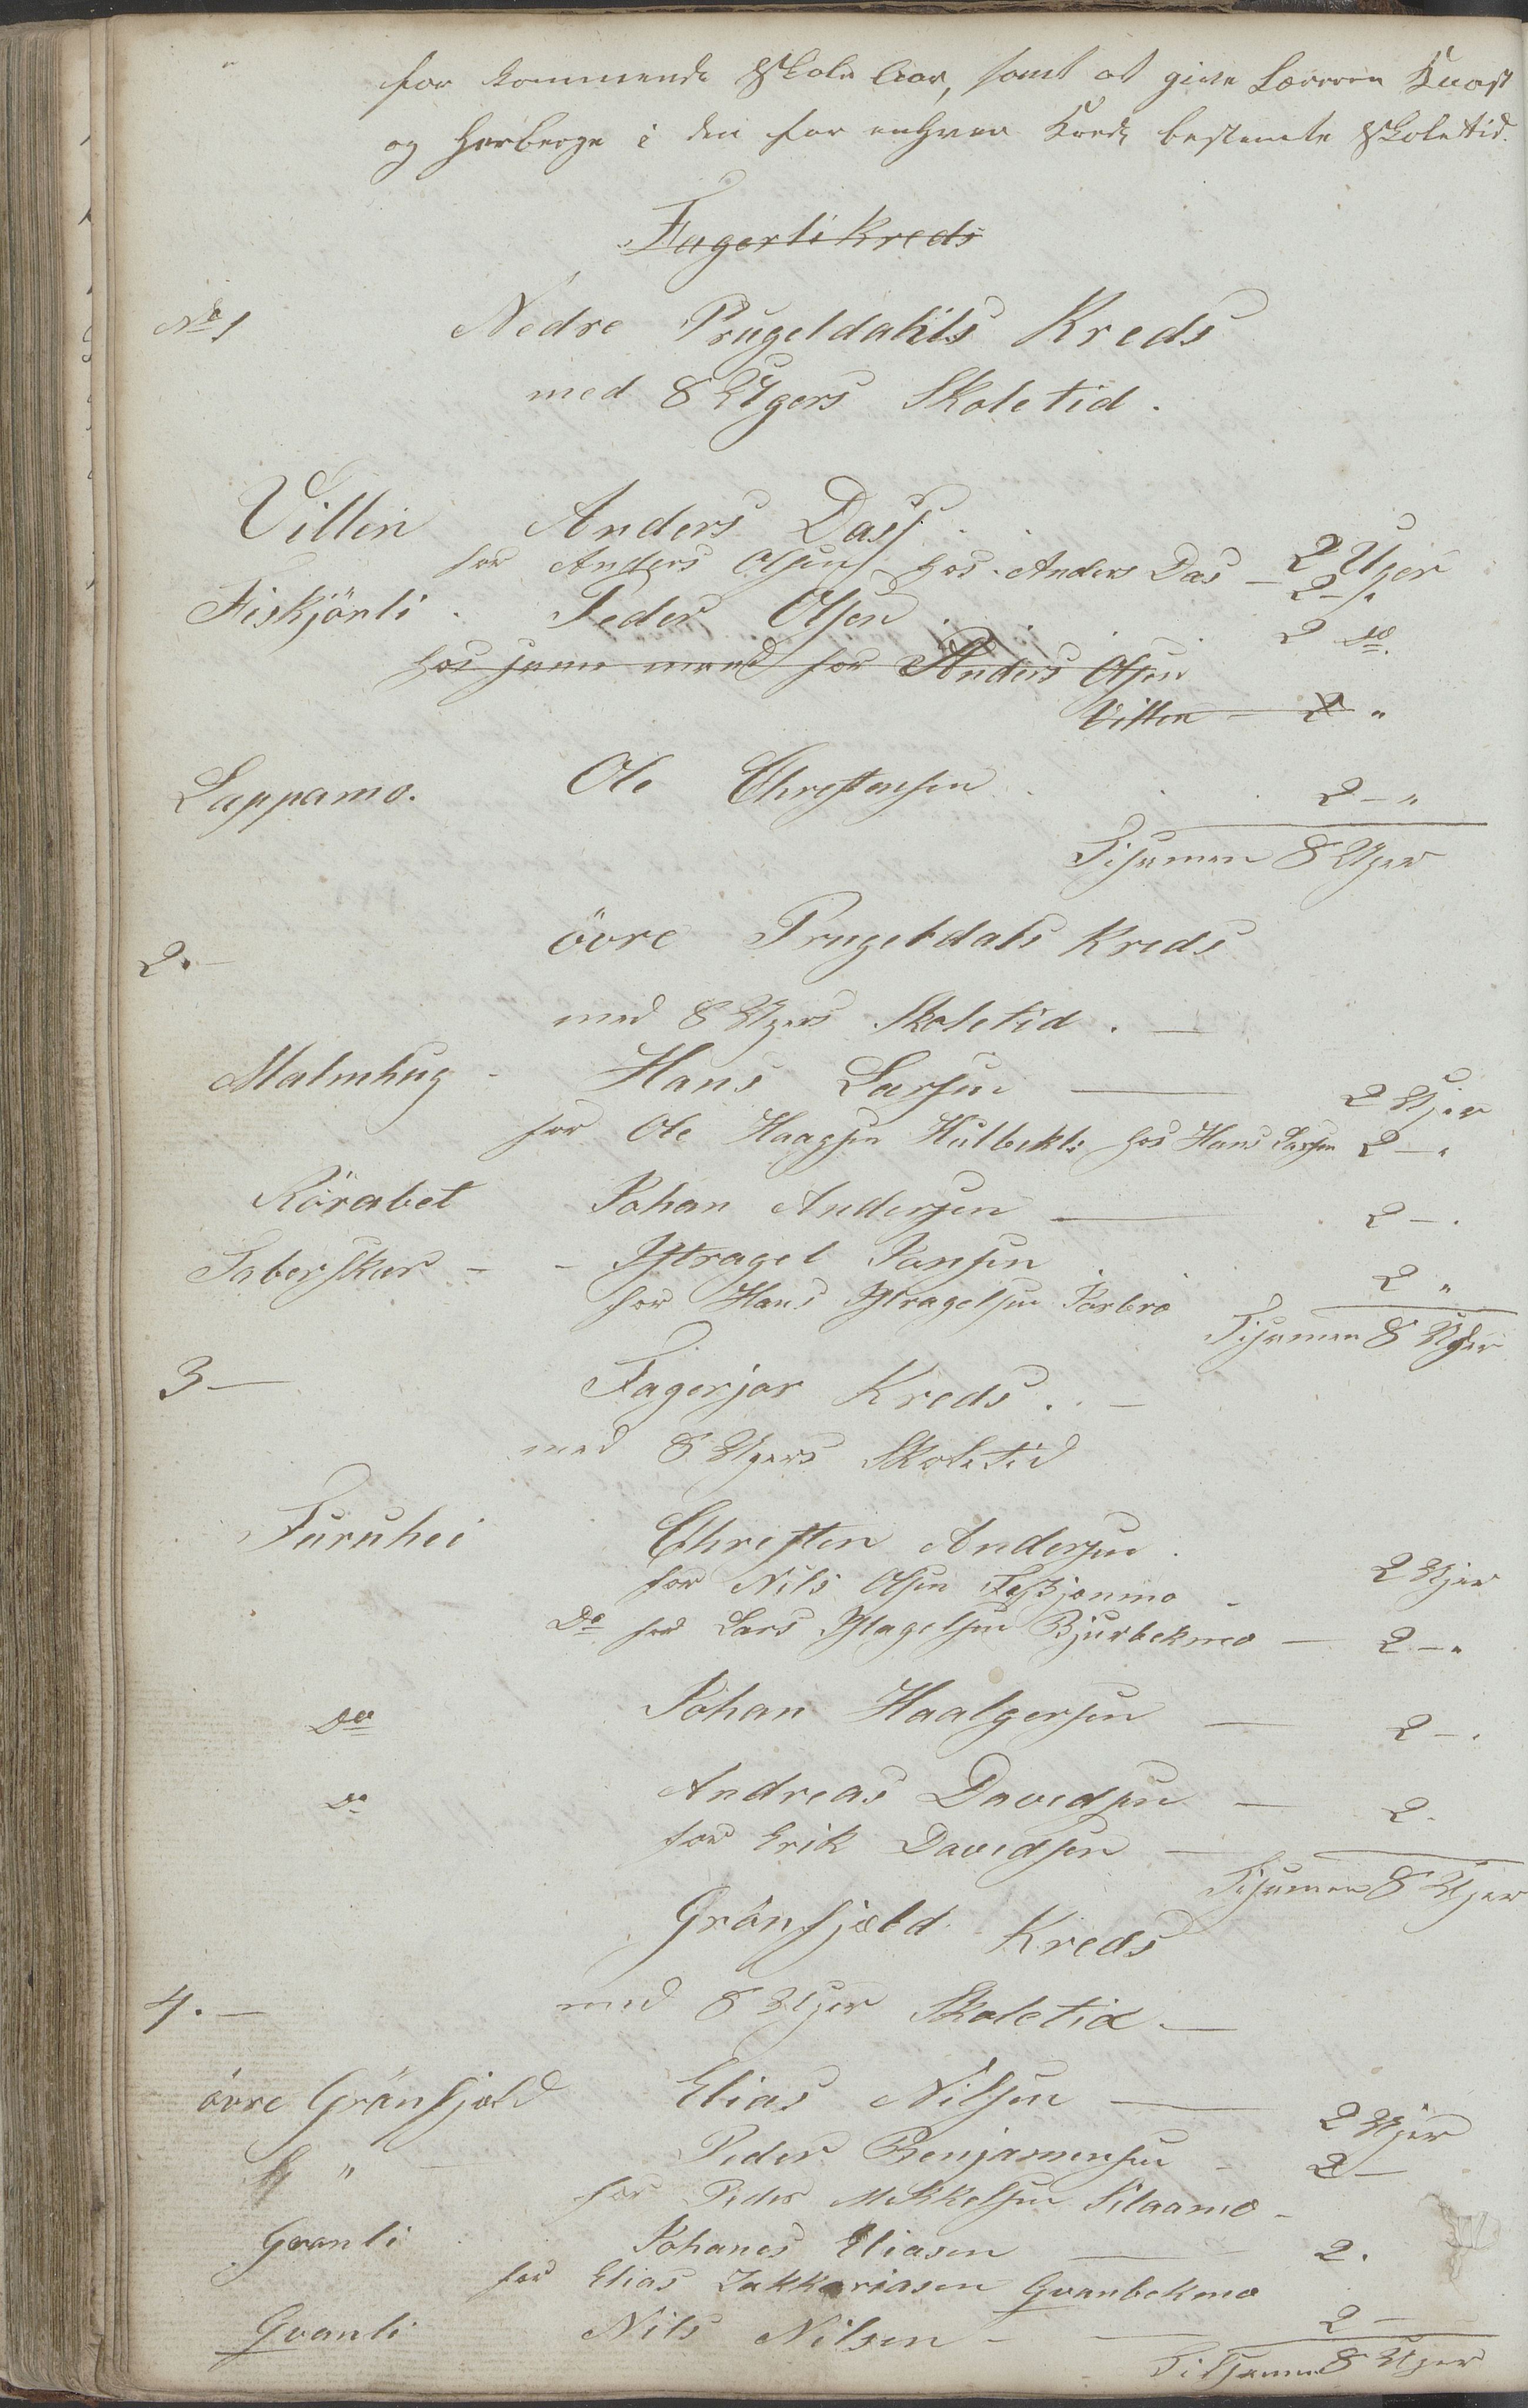 for kommende Skole Aar, samt at give Læreren Kaast
og Herberge i den for enhver Kreds bestemte Skoletid.
Fagerli Kreds
No 1 Nedre Prugeldahls Kreds
med 8 Ugers Skoletid.
Villen Anders Dass . . 2 Uger
for Anders Olsen hos Anders Das - 2 - "
Fiskjönli . Peder Olsen . . . 2 do
hos samme mand for Anders Olsen
Villen - 2 "
Luppamo. Ole Christensen . . . 2 - "
Tilsamen 8 Uger
2. - övre Prugeldals Kreds
med 8 Ugers Skoletid. -
Malmhug - Hans Larsen - 2 Uger
for Ole Haagsen Hülbekli hos Hans Larsen 2 - "
Rörabet Johan Andersen - 2 - .
Taberskar - - Istragel Jansen . . 2 "
for Hans Istragelsen Jorbro
Tilsamen 8 Uger
3 - Fagerjor Kreds . . -
med 8 Ugers Skoletid
Furuhei Christen Andersen .
for Nils Olsen Feskjonmo - 2 Uger
Do for Lars Istagelsen Bjurbekmo - 2 - "
Do Johan Haalgersen - 2 - .
Do Andreas Davedsen - 2 -
for Erik Davedsen -
Tilsamen 8 Uger
Grönfjæld Kreds
4. - med 8 Uger Skoletid -
övre Grönfjæld Elias Nilsen - 2 Uger
" - Peder Benjamensen - 2 -
for Peder Mikkelsen Silaamo -
Gvanli Johanes Eliasen - 2 .
for Elias Zakkariasen Gvanbekmo
Gvanli Nils Nilsen - - 2 -
Tilsamen 8 Uger